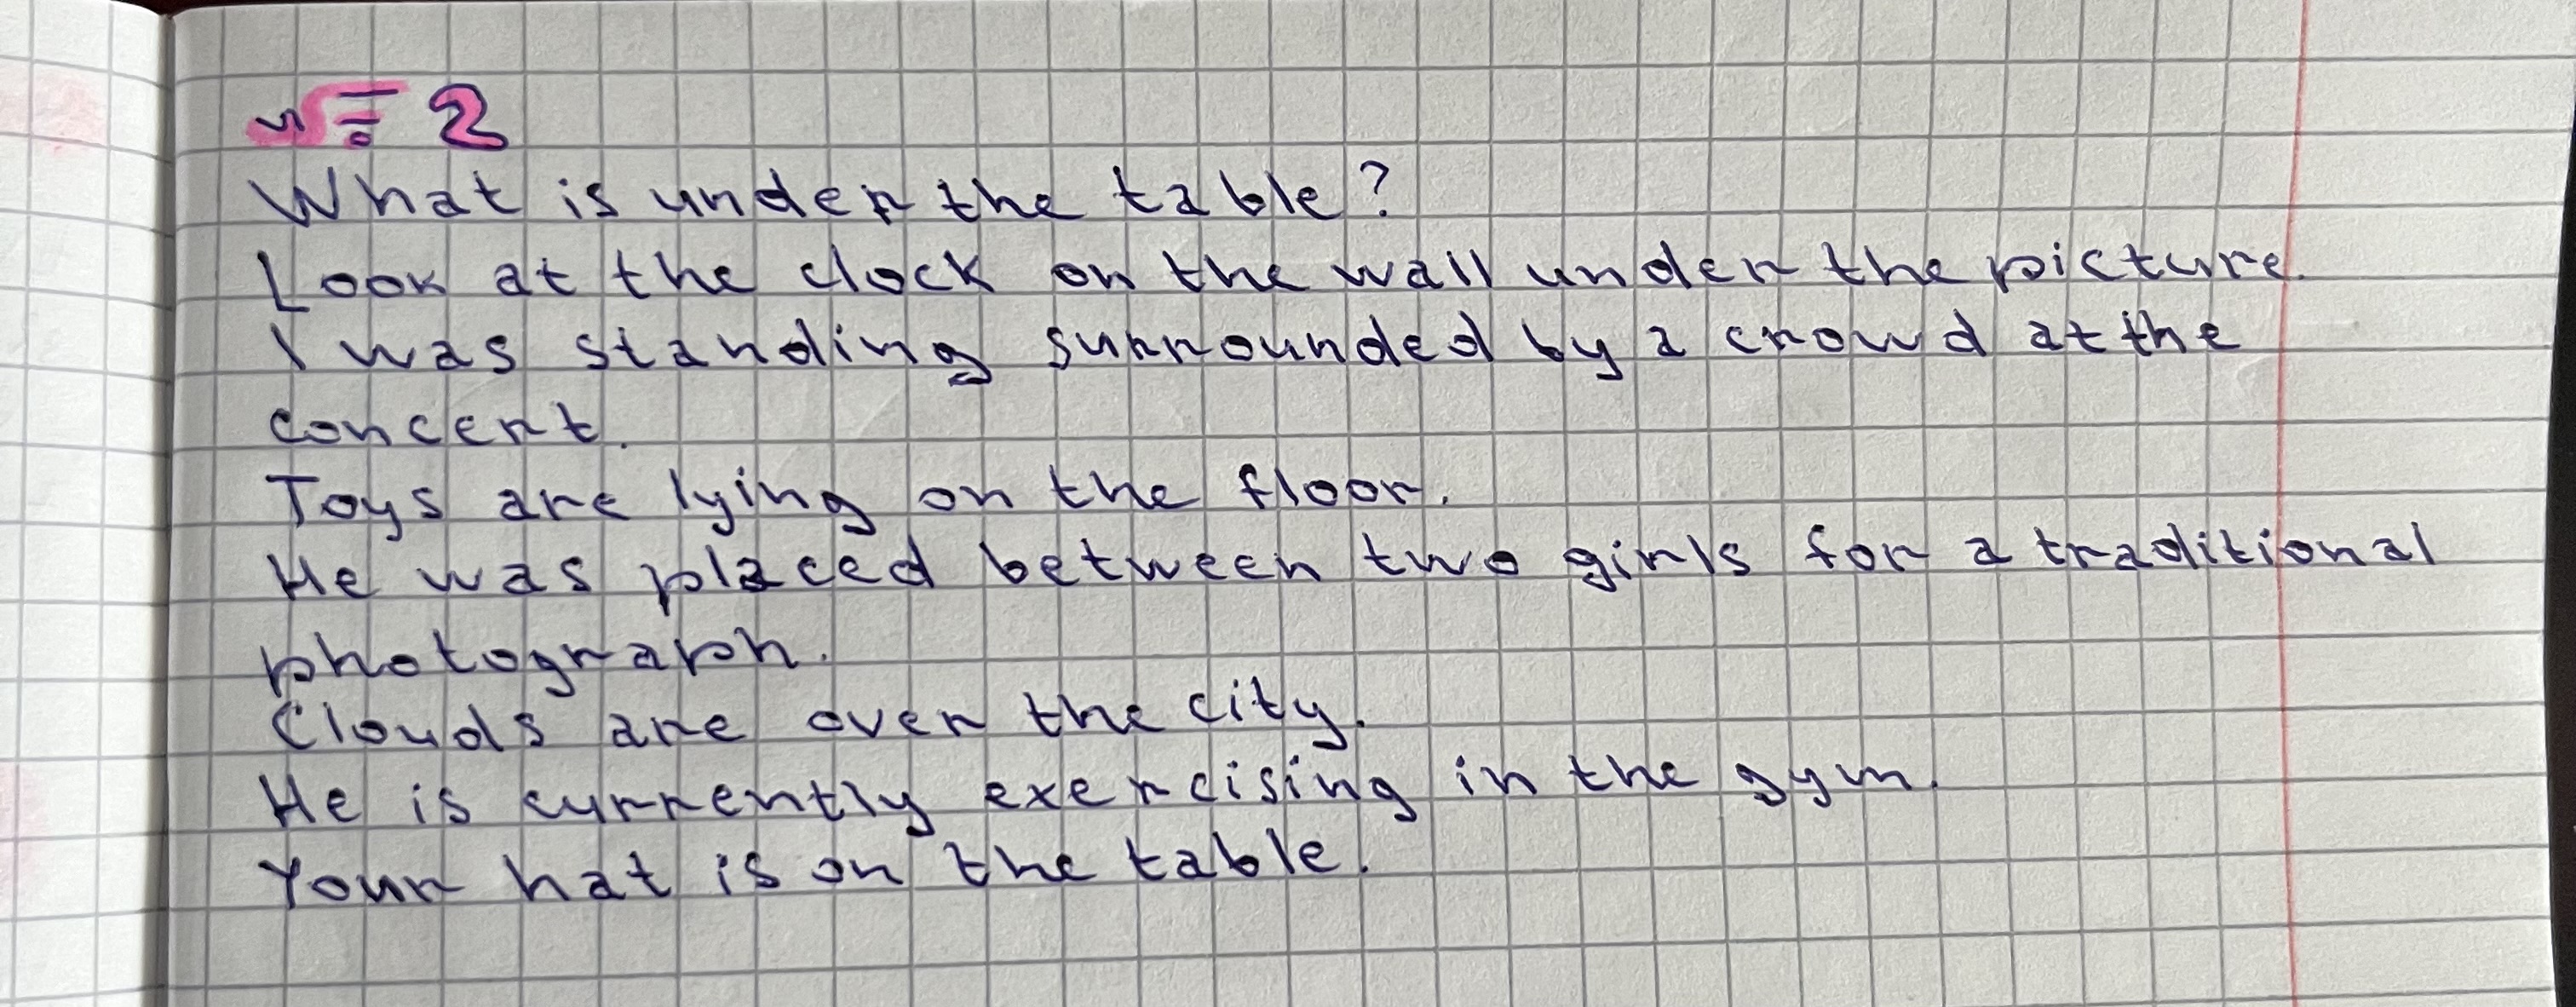 № 2
What is under the table?
Look at the clock on the wall under the picture.
I was standing surrounded by a crowd at the
concert.
Toys are lying on the floor.
He was placed between two girls for a traditional
photograph.
Clouds are over the city.
He is currently exercising in the gym.
Your hat is on the table.